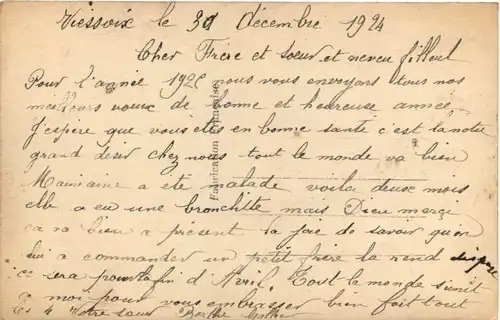 Viessoix le 31 décembre 1924
Cher Frère et soeur et neveu filleul
Pour l'année 1925 nous vous envoyons tous nos
meilleurs voeux de bonne et heureuse année
J'espère que vous êtes en bonne santé c'est la notre
grand désir chez nous tout le monde va bien
Mamaine a été malade voila deux mois
elle a eu une bronchite mais Dieu merci
ca va bien a present la joie de savoir qu'on
lui a commander un petit frère la rend
ce sera pour la fin d'Avril. Tout la monde s'unit
a moi pour vous embrasser bien fort tout
les 4 Votre soeur Berthe
Fabrication Française